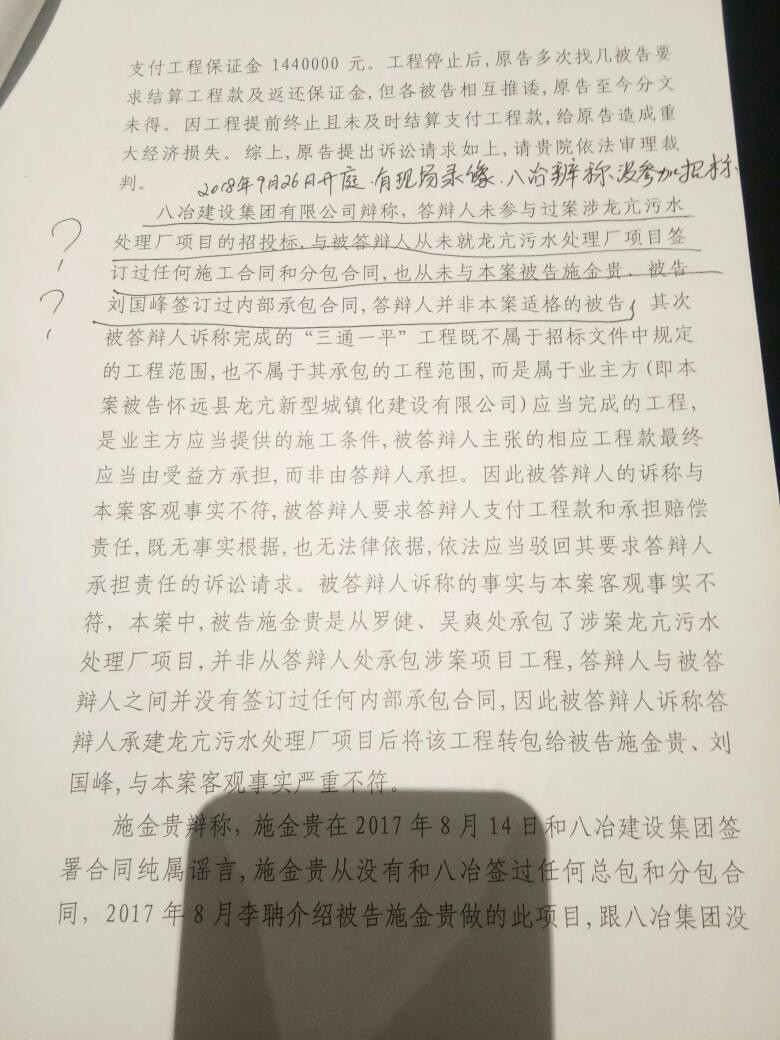 支付工程保证金 1440000 元。工程停止后,原告多次找几被告要
求结算工程款及返还保证金,但各被告相互推诿,原告至今分文
未得。因工程提前终止且未及时结算支付工程款,给原告造成重
大经济损失。综上,原告提出诉讼请求如上,请贵院依法审理裁
判。
2018年9月26日开庭.有现场录像.八冶辨称没参加招标.
八冶建设集团有限公司辩称,答辩人未参与过案涉龙亢污水
?
处理厂项目的招投标,与被答辩人从未就龙亢污水处理厂项目签
订过任何施工合同和分包合同,也从未与本案被告施金贵、被告
?
刘国峰签订过内部承包合同,答辩人并非本案适格的被告,其次
被答辩人诉称完成的“三通一平”工程既不属于招标文件中规定
的工程范围,也不属于其承包的工程范围,而是属于业主方(即本
案被告怀远县龙亢新型城镇化建设有限公司)应当完成的工程,
是业主方应当提供的施工条件,被答辩人主张的相应工程款最终
应当由受益方承担,而非由答辩人承担。因此被答辩人的诉称与
本案客观事实不符,被答辩人要求答辩人支付工程款和承担赔偿
责任,既无事实根据,也无法律依据,依法应当驳回其要求答辩人
承担责任的诉讼请求。被答辩人诉称的事实与本案客观事实不
符,本案中,被告施金贵是从罗健、吴爽处承包了涉案龙亢污水
处理厂项目,并非从答辩人处承包涉案项目工程,答辩人与被答
辩人之间并没有签订过任何内部承包合同,因此被答辩人诉称答
辩人承建龙亢污水处理厂项目后将该工程转包给被告施金贵、刘
国峰,与本案客观事实严重不符。
施金贵辩称,施金贵在 2017 年 8 月 14 日和八冶建设集团签
署合同纯属谣言,施金贵从没有和八冶签过任何总包和分包合
同,2017 年 8 月李聃介绍被告施金贵做的此项目,跟八冶集团没